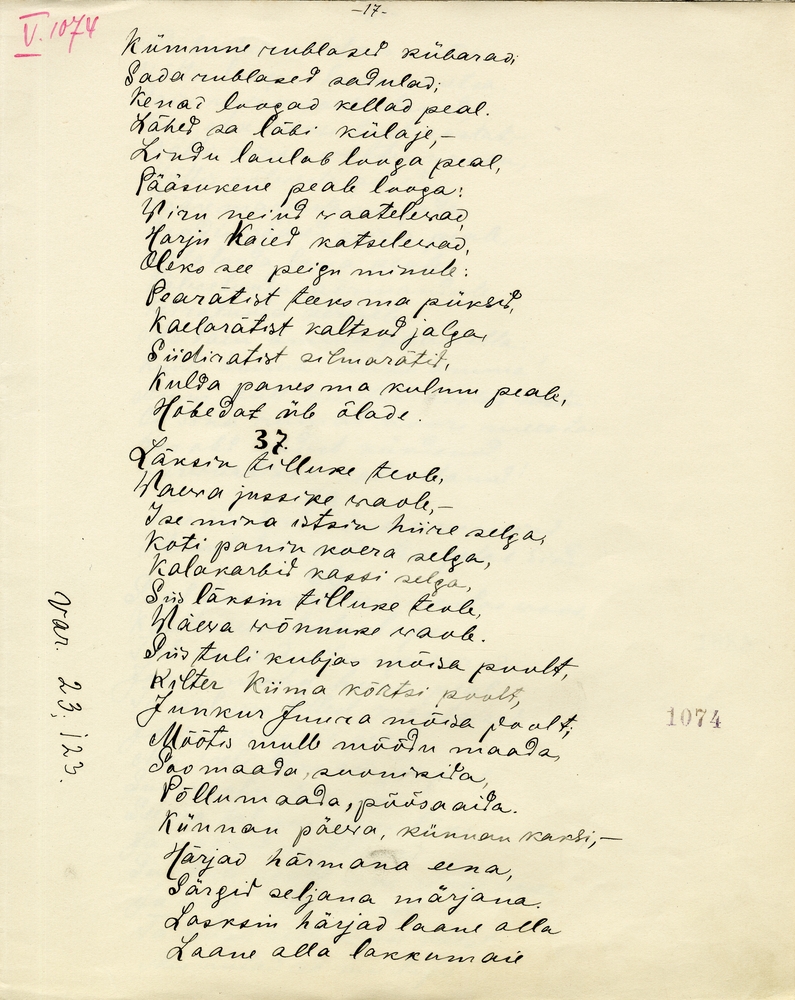 -17-
V. 1074
Kümmne rublased kübarad;
Sada rublased sadulad;
Kenad loogad kellad peal.
Lähed sa läbi külaje,—
Lindu laulab looga peal,
Pääsukene peale looga:
Wiru neiud waatelewad,
Harju Kaied katselewad,
Oleks see peigu minule:
Pearätist teeks ma püksid,
Kaelarätist kaltsud jalga,
Siidirätist silmarätid,
Kulda panes ma kulmu peale,
Hõbedat üle õlade.
37.
Läksin tilluke teole,
Waewa jussike waole,—
Ise mina istsin hiire selga,
Koti panin koera selga,
Kalakarbid kassi selga,
Siis läksin tilluke teole,
Wäewa wõnnuke waole.
Siis tuli kubjas mõisa poolt,
Kilter Kiima kõrtsi poolt,
Junkur Juura mõisa poolt;
Mõõtis mulle mõõdu maada,
Soo maada, soonikida,
Põllumaada, põõsaaida.
Künnan päewa, künnan kaksi,—
Härjad härmana eena,
Särgid seljana märjana.
Lasksin härjad laane alla
Laane alla lakkumaie
var. 23; 123.
1074